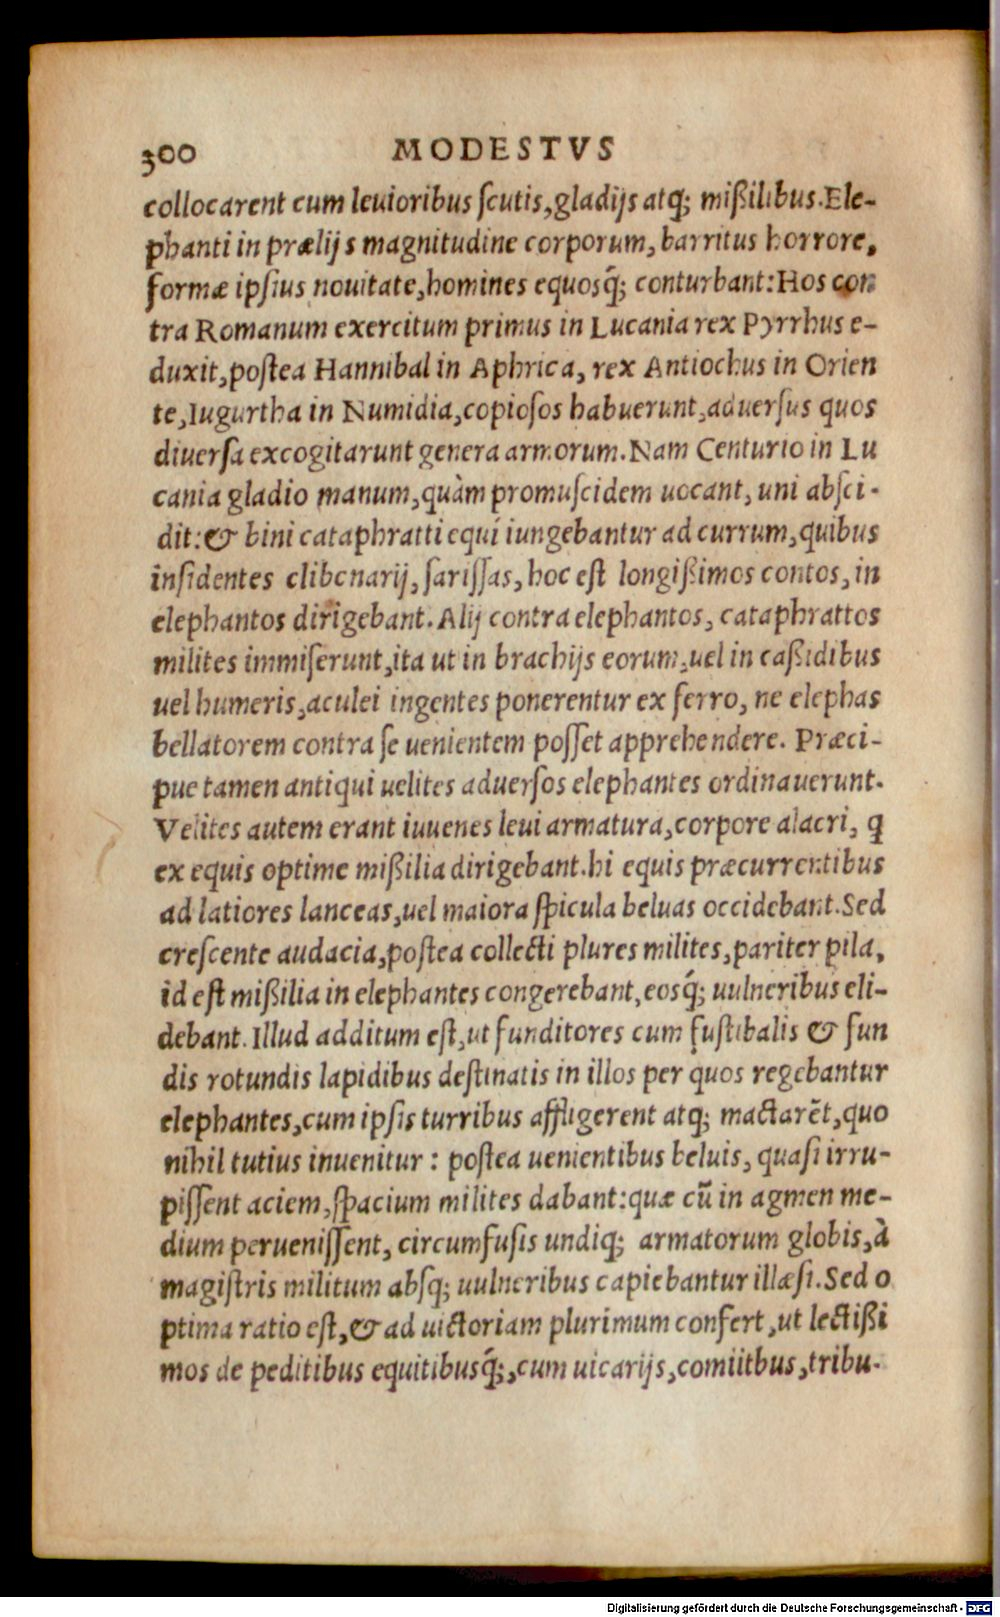 300 MODESTVS
collocarent cum leuioribus ſcutis, gladijs atq; mißilibus. Ele-
phanti in prælijs magnitudine corporum, barritus horrore,
formæ ipſius nouitate, homines equosq́; conturbant: Hos con
tra Romanum exercitum primus in Lucania rex Pyrrhus e-
duxit, poſtea Hannibal in Aphrica, rex Antiochus in Orien
te, Iugurtha in Numidia, copioſos habuerunt, aduerſus quos
diuerſa excogitarunt genera armorum. Nam Centurio in Lu
cania gladio manum, quàm promuſcidem uocant, uni abſci-
dit: & bini cataphratti equi iungebantur ad currum, quibus
inſidentes clibenarij, ſariſſas, hoc eſt longißimos contos, in
elephantos dirigebant. Alij contra elephantos, cataphrattos
milites immiſerunt, ita ut in brachijs eorum, uel in caßidibus
uel humeris, aculei ingentes ponerentur ex ferro, ne elephas
bellatorem contra ſe uenientem poſſet apprehendere. Præci-
pue tamen antiqui uelites aduerſos elephantes ordinauerunt.
Velites autem erant iuuenes leui armatura, corpore alacri, q
ex equis optime mißilia dirigebant. hi equis præcurrentibus
ad latiores lanceas, uel maiora ſpicula beluas occidebant. Sed
creſcente audacia, poſtea collecti plures milites, pariter pila,
id eſt mißilia in elephantes congerebant, eosq́; uulneribus eli-
debant. Illud additum eſt, ut funditores cum fuſtibalis & fun
dis rotundis lapidibus deſtinatis in illos per quos regebantur
elephantes, cum ipſis turribus affligerent atq; mactarẽt, quo
nihil tutius inuenitur: poſtea uenientibus beluis, quaſi irru-
piſſent aciem, ſpacium milites dabant: quæ cũ in agmen me-
dium perueniſſent, circumfuſis undiq; armatorum globis, à
magiſtris militum abſq; uulneribus capiebantur illæſi. Sed o
ptima ratio eſt, & ad uictoriam plurimum confert, ut lectißi
mos de peditibus equitibusq́;, cum uicarijs, comiitbus, tribu-
Digitalisierung gefördert durch die Deutsche Forschungsgemeinschaft - DFG